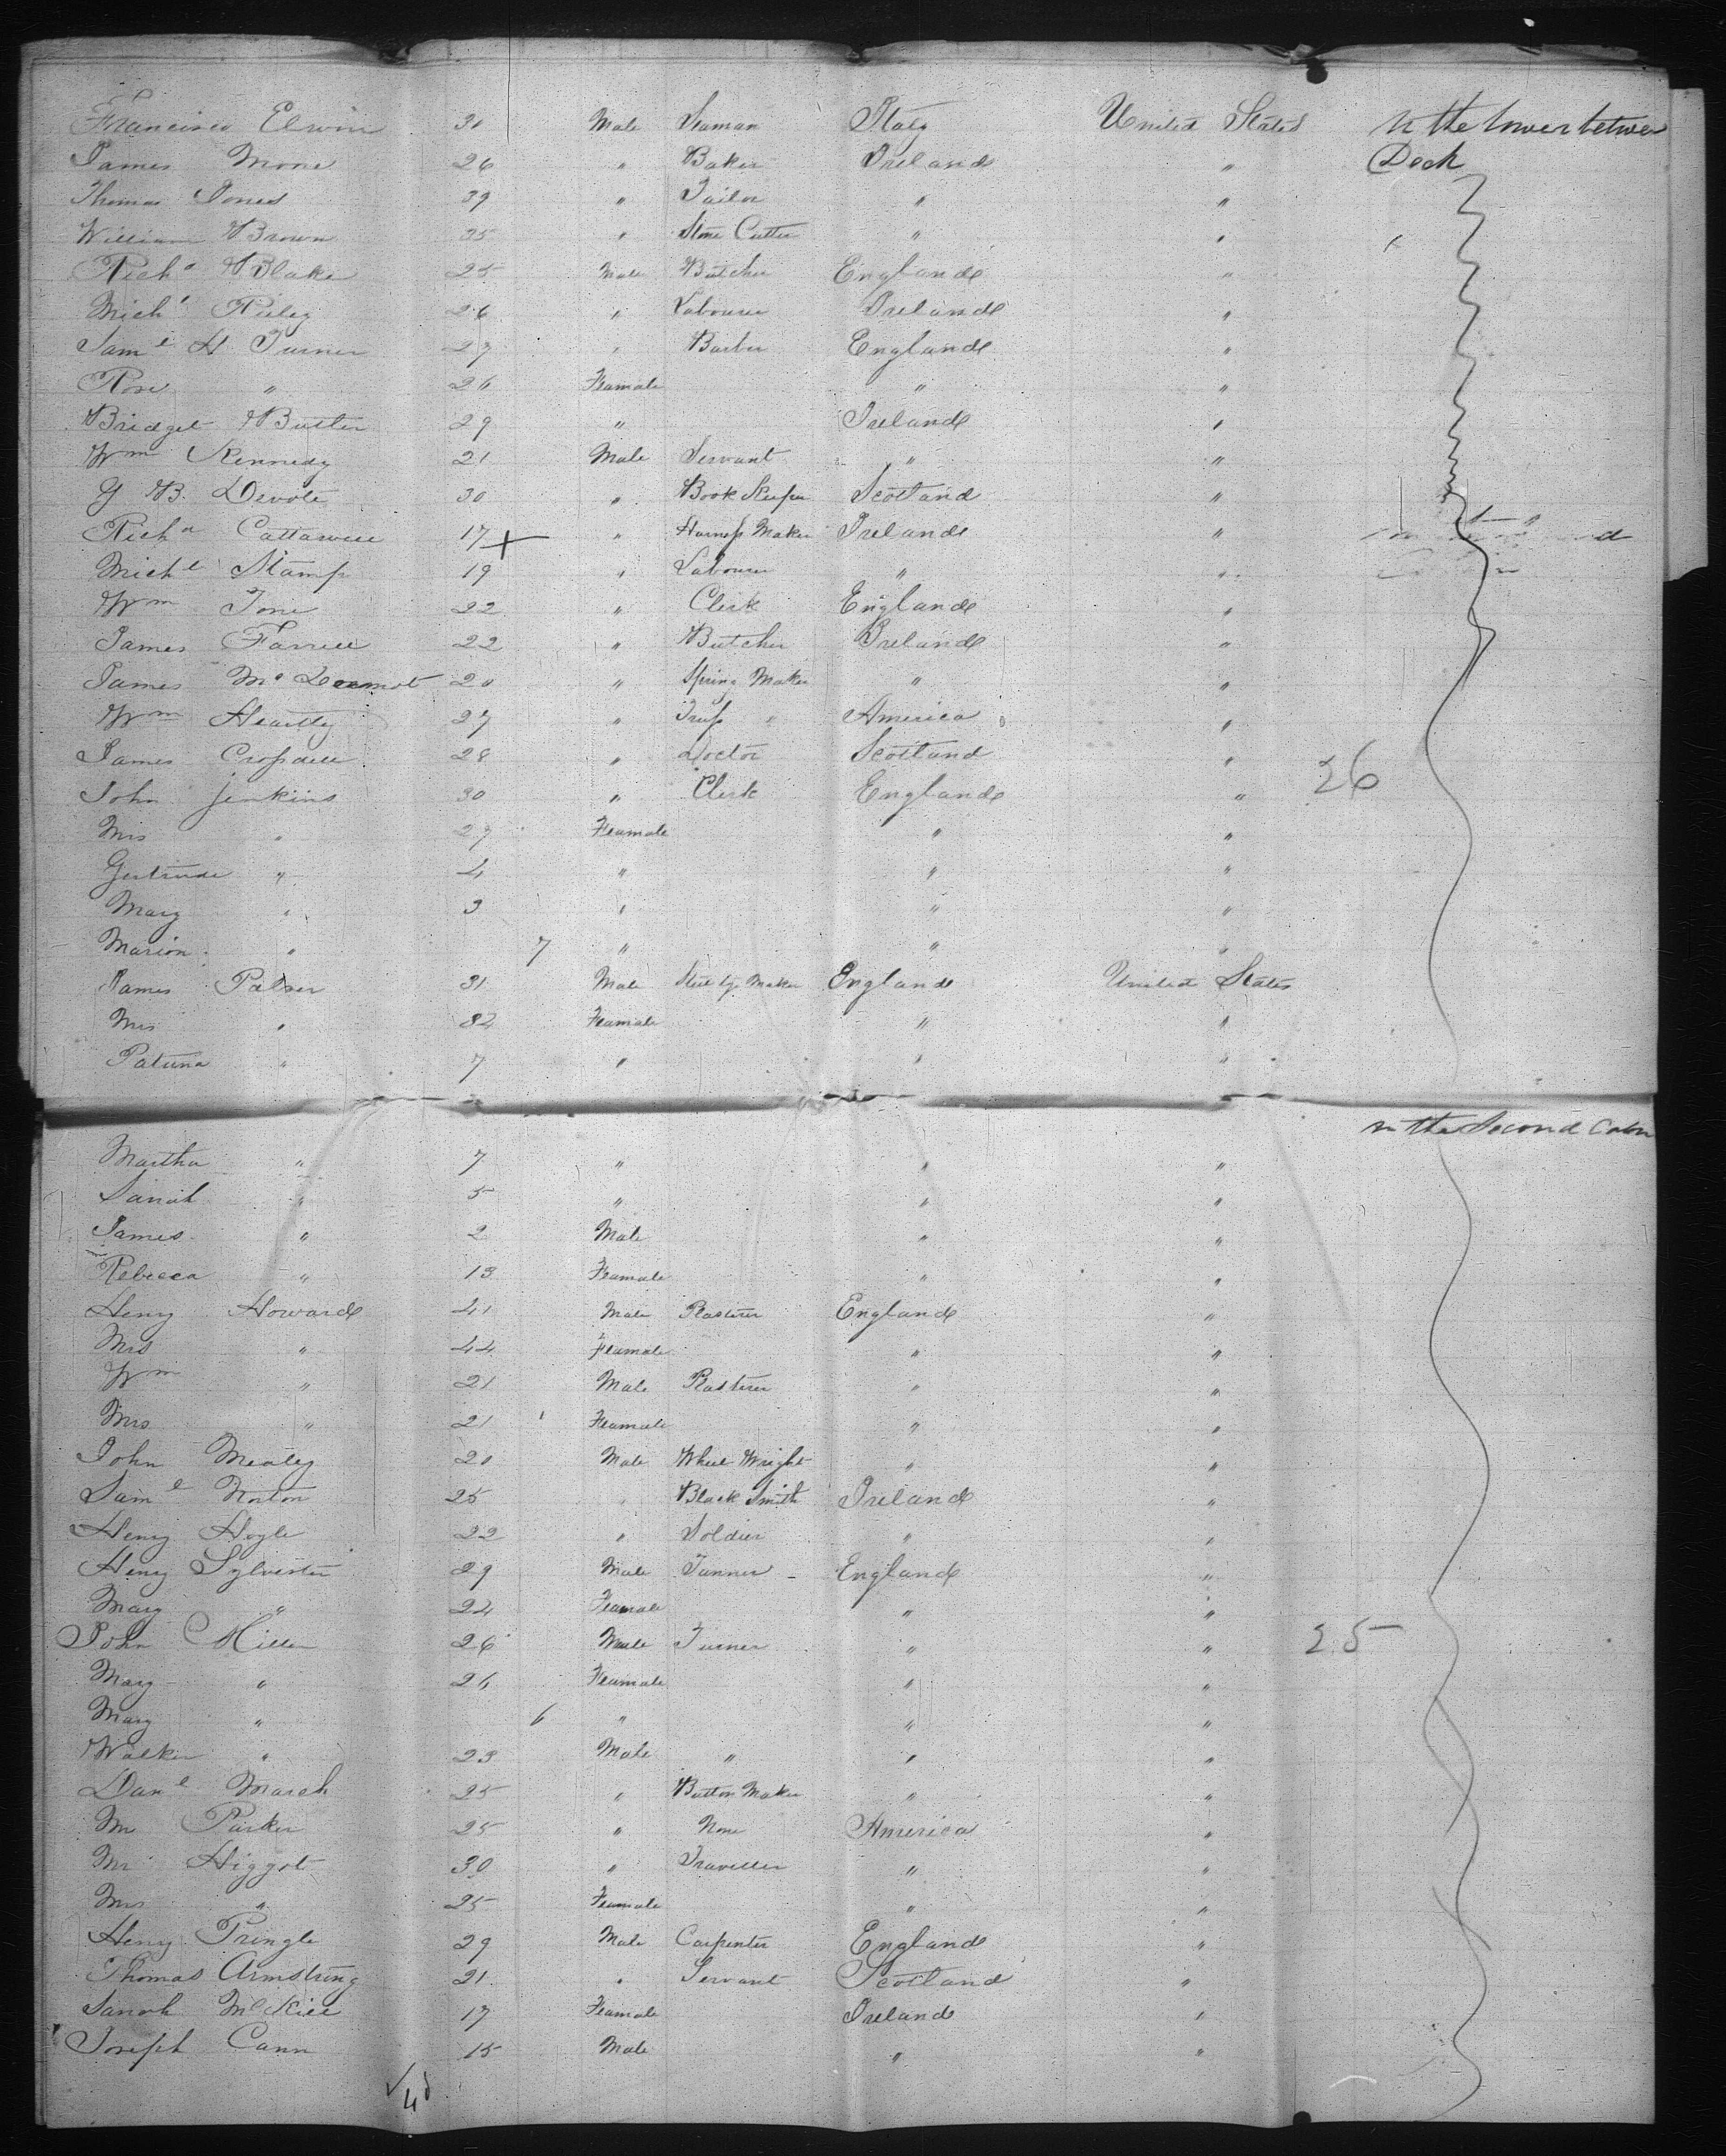 Francisco Elwin 30 Male Seaman Italy United States In the lower between
James Mone 26 " Baker Ireland " Deck
Thomas Jones 39 " Tailor " "
William Brown 35 " Stone Cutter " "
Richd Blake 25 Male Butcher England "
Michl Rieley 26 " Labourer Ireland "
Saml H Turner 27 " Barber England "
Rose " 26 Feamale " "
Bridget Butler 29 " Ireland "
Wm Kennedy 21 Male Servant " "
G B. Devote 30 " Book Keeper Scotland "
Richd 17 " Harness Maker Ireland "
Michl Stamp 19 " Labourer " "
Wm Tone 22 " Clerk England "
James Farrell 22 " Butcher Ireland "
James Mc Dermot 20 " Spring Maker " "
Wm 27 " " America "
James Crossdell 28 " Doctor Scotland "
John Jenkins 30 " Clerk England " 26
Mrs " 27 Feamale " "
Gertrude " 4 " " "
Mary " 3 " " "
Marion " 7 " " "
James Palser 31 Male Maker England United States
Mrs " 32 Feamale " "
" 7 " " "
In the Second Cabin
Martha " 7 " " "
Sarah " 5 " " "
James " 2 Male " "
Rebecca " 13 Feamale " "
Henry Howard 41 Male Plasterer England "
Mrs " 44 Feamale " "
Wm " 21 Male Plasterer " "
Mrs " 21 Feamale " "
John Mealey 20 Male Wheel Wright " "
Saml Norton 25 " Black Smith Ireland "
Henry Hogle 22 " Soldier " "
Henry Sylvester 29 Male Tanner England "
Mary " 24 Feamale " "
John Miller 26 Male Turner " " 25
Mary " 26 Feamale " "
Mary " 6 " " "
Walker " 23 Male " " "
Danl March 25 " Button Maker " "
Mr Parker 25 " None America "
Mr Higgot 30 " Traveller " "
Mrs " 25 Feamale " "
Henry Pringle 29 Male Carpenter England "
Thomas Armstrong 21 " Servant Scotland "
Sarah 17 Feamale Ireland "
Joseph Cann 15 Male " "